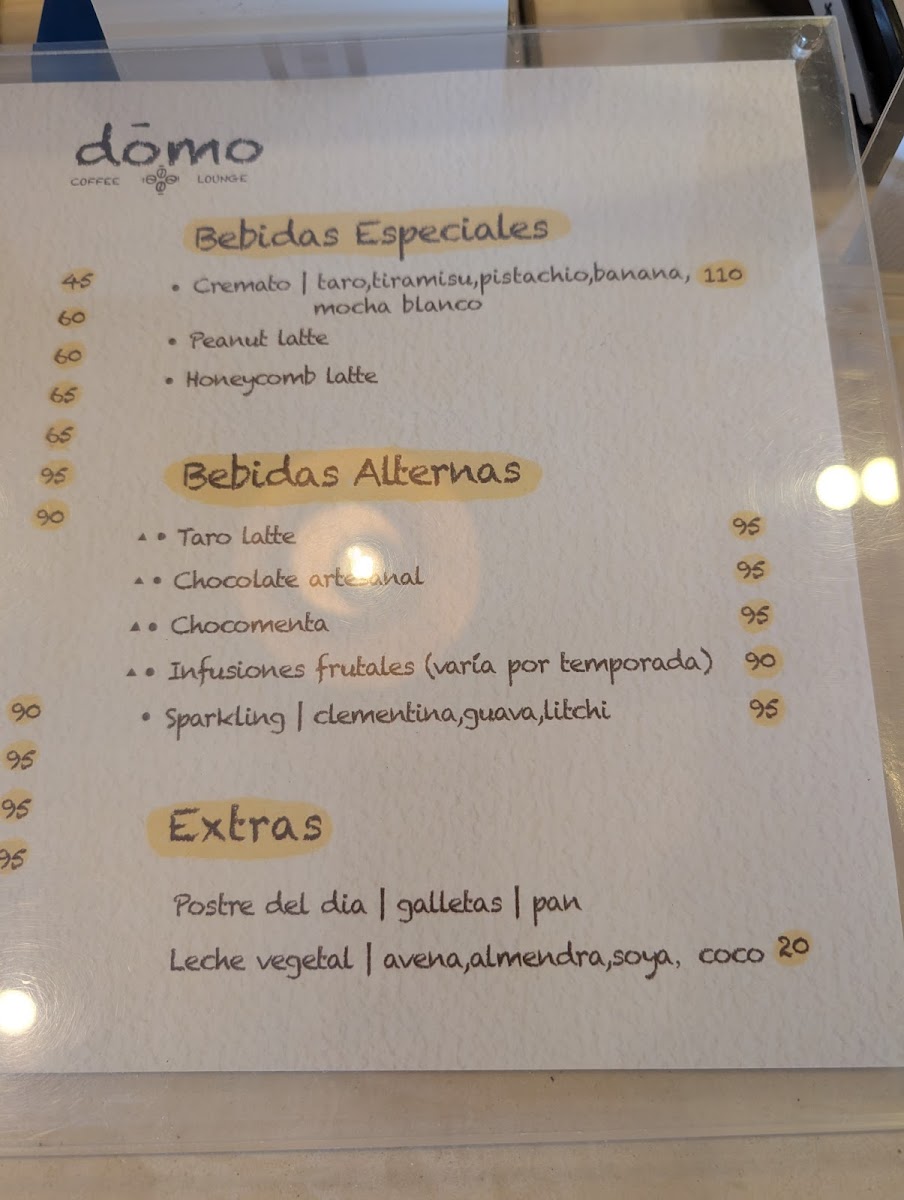 dōmo
COFFEE LOUNGE
Bebidas Especiales
45
• Cremato | taro,tiramisu,pistachio,banana, 110
mocha blanco
60
• Peanut latte
60
• Honeycomb latte
65
65
Bebidas Alternas
95
90
▲ • Taro latte 95
▲ • Chocolate artesanal 95
▲ • Chocomenta 95
▲ • Infusiones frutales (varía por temporada) 90
• Sparkling | clementina,guava,litchi 95
90
95
95
95
Extras
Postre del dia | galletas | pan
Leche vegetal | avena,almendra,soya, coco 20